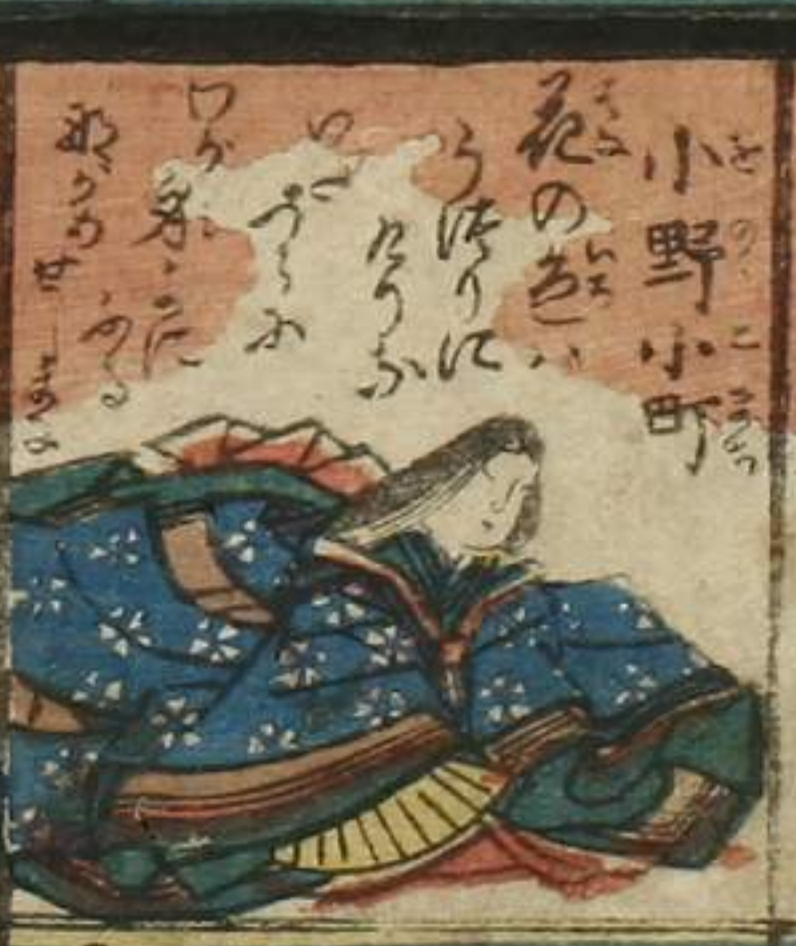 小野小町
をのゝこまち
花の色ハ
はな いろ
うつりに
けりな
いたづらに
わが身よに
ふる
ながめせしまに